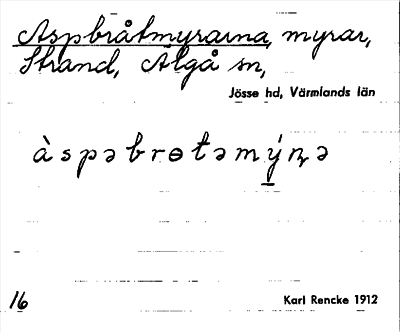 Aspbråtmyrarna, myrar,
Strand, Älgå sn,
Jösse hd, Värmlands län
àspəbrɵtəmýṇə
16
Karl Rencke 1912